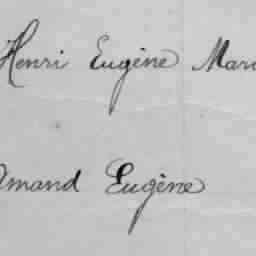 Henri Eugène Mar
Amand Eugène